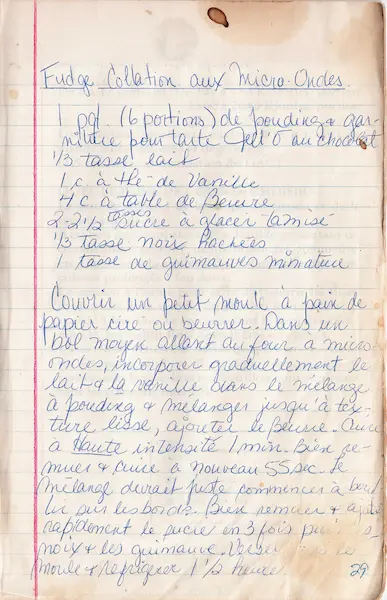 Fudge Collation aux Micro-Ondes.
1 pqt. (6 portions) de pouding & gar-
niture pour tarte Jell'O au chocolat
1/3 tasse lait
1 c. à thé de Vanille
4 c. à table de Beurre
2-2 1/2 tasses sucre à glacer tamisé
1/3 tasse noix hachées
1 tasse de guimauves miniature
Couvrir un petit moule à pain de
papier ciré ou beurrer. Dans un
bol moyen allant au four à micro
ondes, incorporer graduellement le
lait & la vanille dans le mélange
à pouding & mélanger jusqu'à tex-
ture lisse, ajouter le beurre. Cuire
à Haute intensité 1 min. Bien re-
muer & cuire à nouveau 55 sec. Le
mélange devrait juste commencer à
sur les bords. Bien remuer &
rapidement le sucre en 3 fois
noix & les guimauve.
moule & réfrigérer 1 1/2 heure.
29